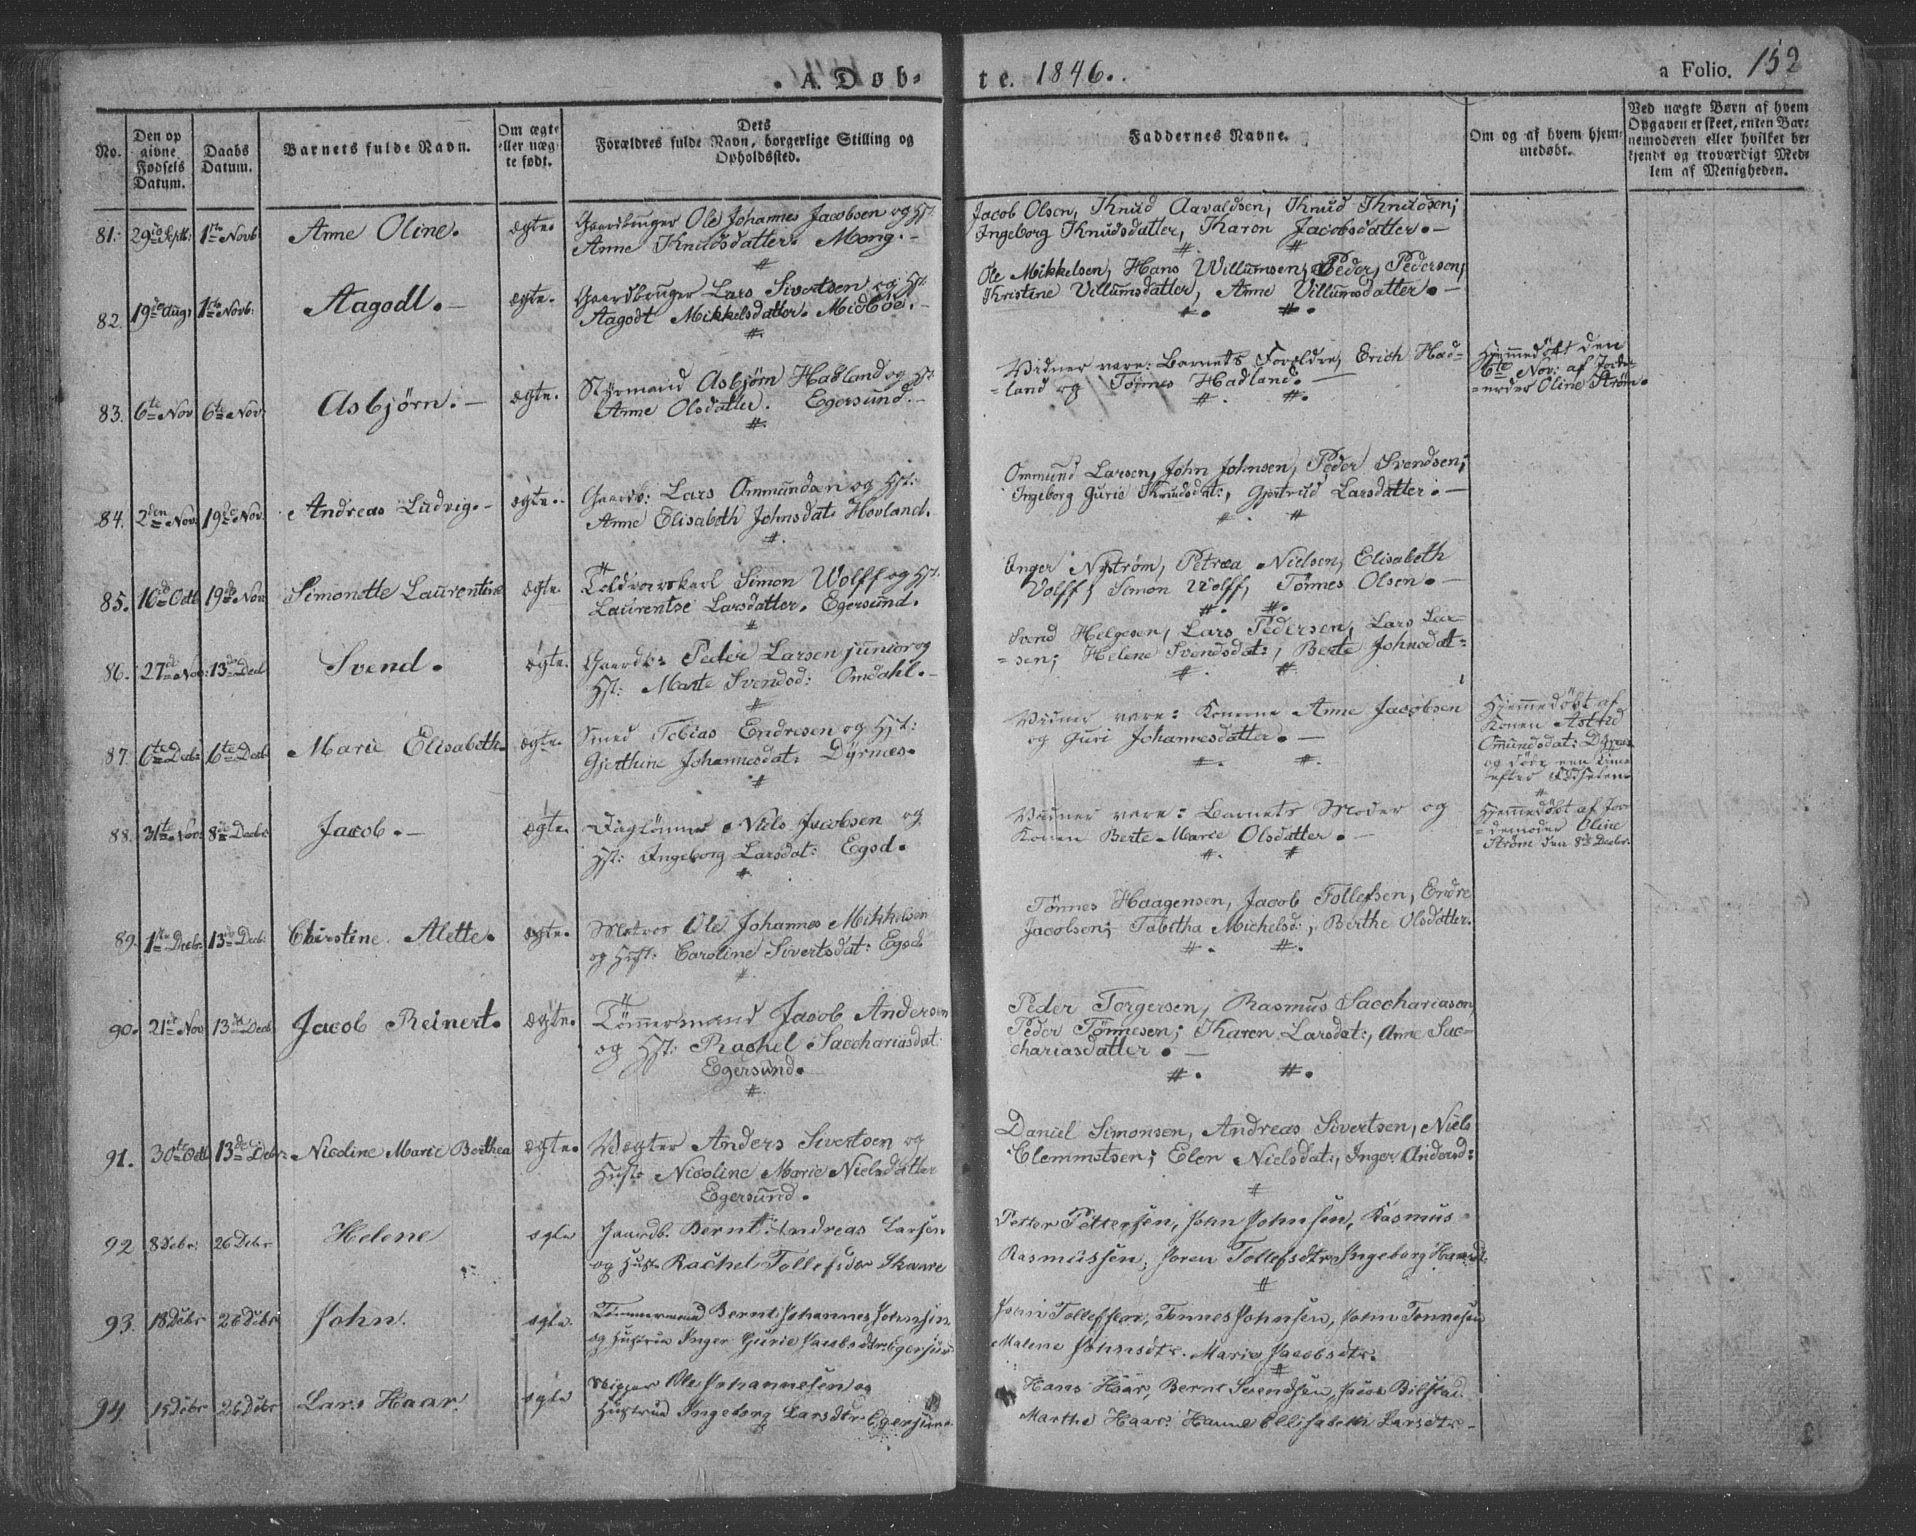 A. Døb-
te. 1846.
a Folio. 152
No.
Den op
givne
Fødsels
Datum.
Daabs
Datum.
Barnets fulde Navn.
Om ægte
eller uæg
te født.
Dets
Forældres fulde Navn, borgerlige Stilling og
Opholdssted.
Faddernes Navne.
Om og af hvem hjem-
medøbt.
Ved uægte Børn af hvem
Opgaven er skeet, enten Bar-
nemoderen eller hvilket be-
kjendt og troværdigt Med-
lem af Menigheden.
81. 29de Septb: 1ste Novb. Anne Oline. ægte.
Gaardbruger Ole Johannes Jacobsen og Hst:
Anne Knudsdatter. Mong.
Jacob Olsen, Knud Aavaldsen, Knud Knudsen;
Ingeborg Knudsdatter, Karen Jacobsdatter.
82. 19de Aug: 1ste Novb: Aagodt. ægte.
Gaardbruger Lars Sivertsen og Hst:
Aagodt Mikkelsdatter. Midbøe.
Ole Mikkelsen, Hans Willumsen, Peder Pedersen;
Kristine Villumsdatter, Anne Villumsdatter.
83. 6te Nov 6te Nov: Asbjørn. ægte.
Styrmand Asbjørn Hadland og Hst:
Anne Olsdatter. Egersund.
Vidner vare: Barnets Forældre, Erich Had-
land og Tønnes Hadland.
Hjemmedøbt den
6te Nov: af Jorde-
moder Oline Strøm.
84. 2den Nov. 19de Nov. Andreas Ludvig. ægte.
Gaardb: Lars Ommundsen og Hst:
Anne Elisabeth Johnsdat: Hovland.
Ommund Larsen, John Johnsen, Peder Svendsen;
Ingeborg Gurie Knudsdat:, Gjertrud Larsdatter.
85. 16de Octb 19de Nov Simonette Laurentine ægte.
Toldroerskarl Simon Wolff og Hst:
Laurentse Larsdatter. Egersund.
Inger Nystrøm, Petrea Nielsen, Elisabeth
Volff, Simon Wolff, Tønnes Olsen.
86. 27de Nov: 13de Decb Svend. ægte.
Gaardb: Peder Larsen junior og
Hst: Marte Svendsd: Omdahl.
Svend Helgesen, Lars Pedersen, Lars Lar-
sen; Helene Svendsdat:, Berte Johnsdat:
87. 6te Decb: 6te Decb Marie Elisabeth. ægte.
Smed Tobias Endresen og Hst:
Gjerthine Johannesdat: Dyrnes.
Vidner vare: Konerne Anne Jacobsen
og Guri Johannesdatter.
Hjemmedøbt af
Konen Astrid
Omundsdat: Dyrnes
og døde een Time
efter Fødselen.
88. 31te Nov: 8de Decbr Jacob. ægte.
Daglønner Niels Jacobsen og
Hst: Ingeborg Larsdat: Egsd.
Vidner vare: Barnets Moder og
Konen Berte Marie Olsdatter.
Hjemmedøbt af Jor-
demoder Oline
Strøm den 8de Decbr.
89. 1ste Decbr. 13de Decb: Christine Alette. ægte.
Matros Ole Johannes Mikkelsen
og Hst: Caroline Sivertsdat: Egsd
Tønnes Haagensen, Jacob Tollefsen, Endre
Jacobsen; Tabitha Michelsd:, Berthe Olsdatter.
90. 21de Nov 13de Decb Jacob Reinert. ægte.
Tømmermand Jacob Andersen
og Hst: Rachel Sacchariasdat:
Egersund.
Peder Torgersen, Rasmus Sacchariasen,
Peder Tønnesen; Karen Larsdat:, Anne Sac-
chariasdatter.
91. 30te Octb 13de Debr: Nicoline Marie Berthea ægte.
Vægter Anders Sivertsen og
Hust: Nicoline Marie Nielsdatter
Egersund.
Daniel Simonsen, Andreas Sivertsen, Niels
Clemmetsen; Elen Nielsdat:, Inger Andersd:
92 8 Debr: 26 Debr Helene ægte
Gaardb. Bernt Andreas Larsen
og Hust. Rachel Tollefsdtr Skaare
Petter Pettersen, John Johnsen, Rasmus
Rasmussen, Soren Tollefsdtr Ingeborg Haavdt:
93. 18 Debr 26 Debr John. ægte
Tømmermand Bernt Johannes Johnsen
og Hustrue Inger Gurie Jacobsdtr Egersund
John Tollefsen, Tønnes Johnsen, John Tønnesen
Malene Johnsdtr. Marie Jacobsdtr.
94 15 Debr 26 Debr Lars Haar. ægte
Skipper Ole Johannesen og
Hustrue Ingeborg Larsdtr Egersund
Hans Haar, Bernt Svendsen, Bilstad
Marthe Haar, Hanne Ellisabeth Larsdtr